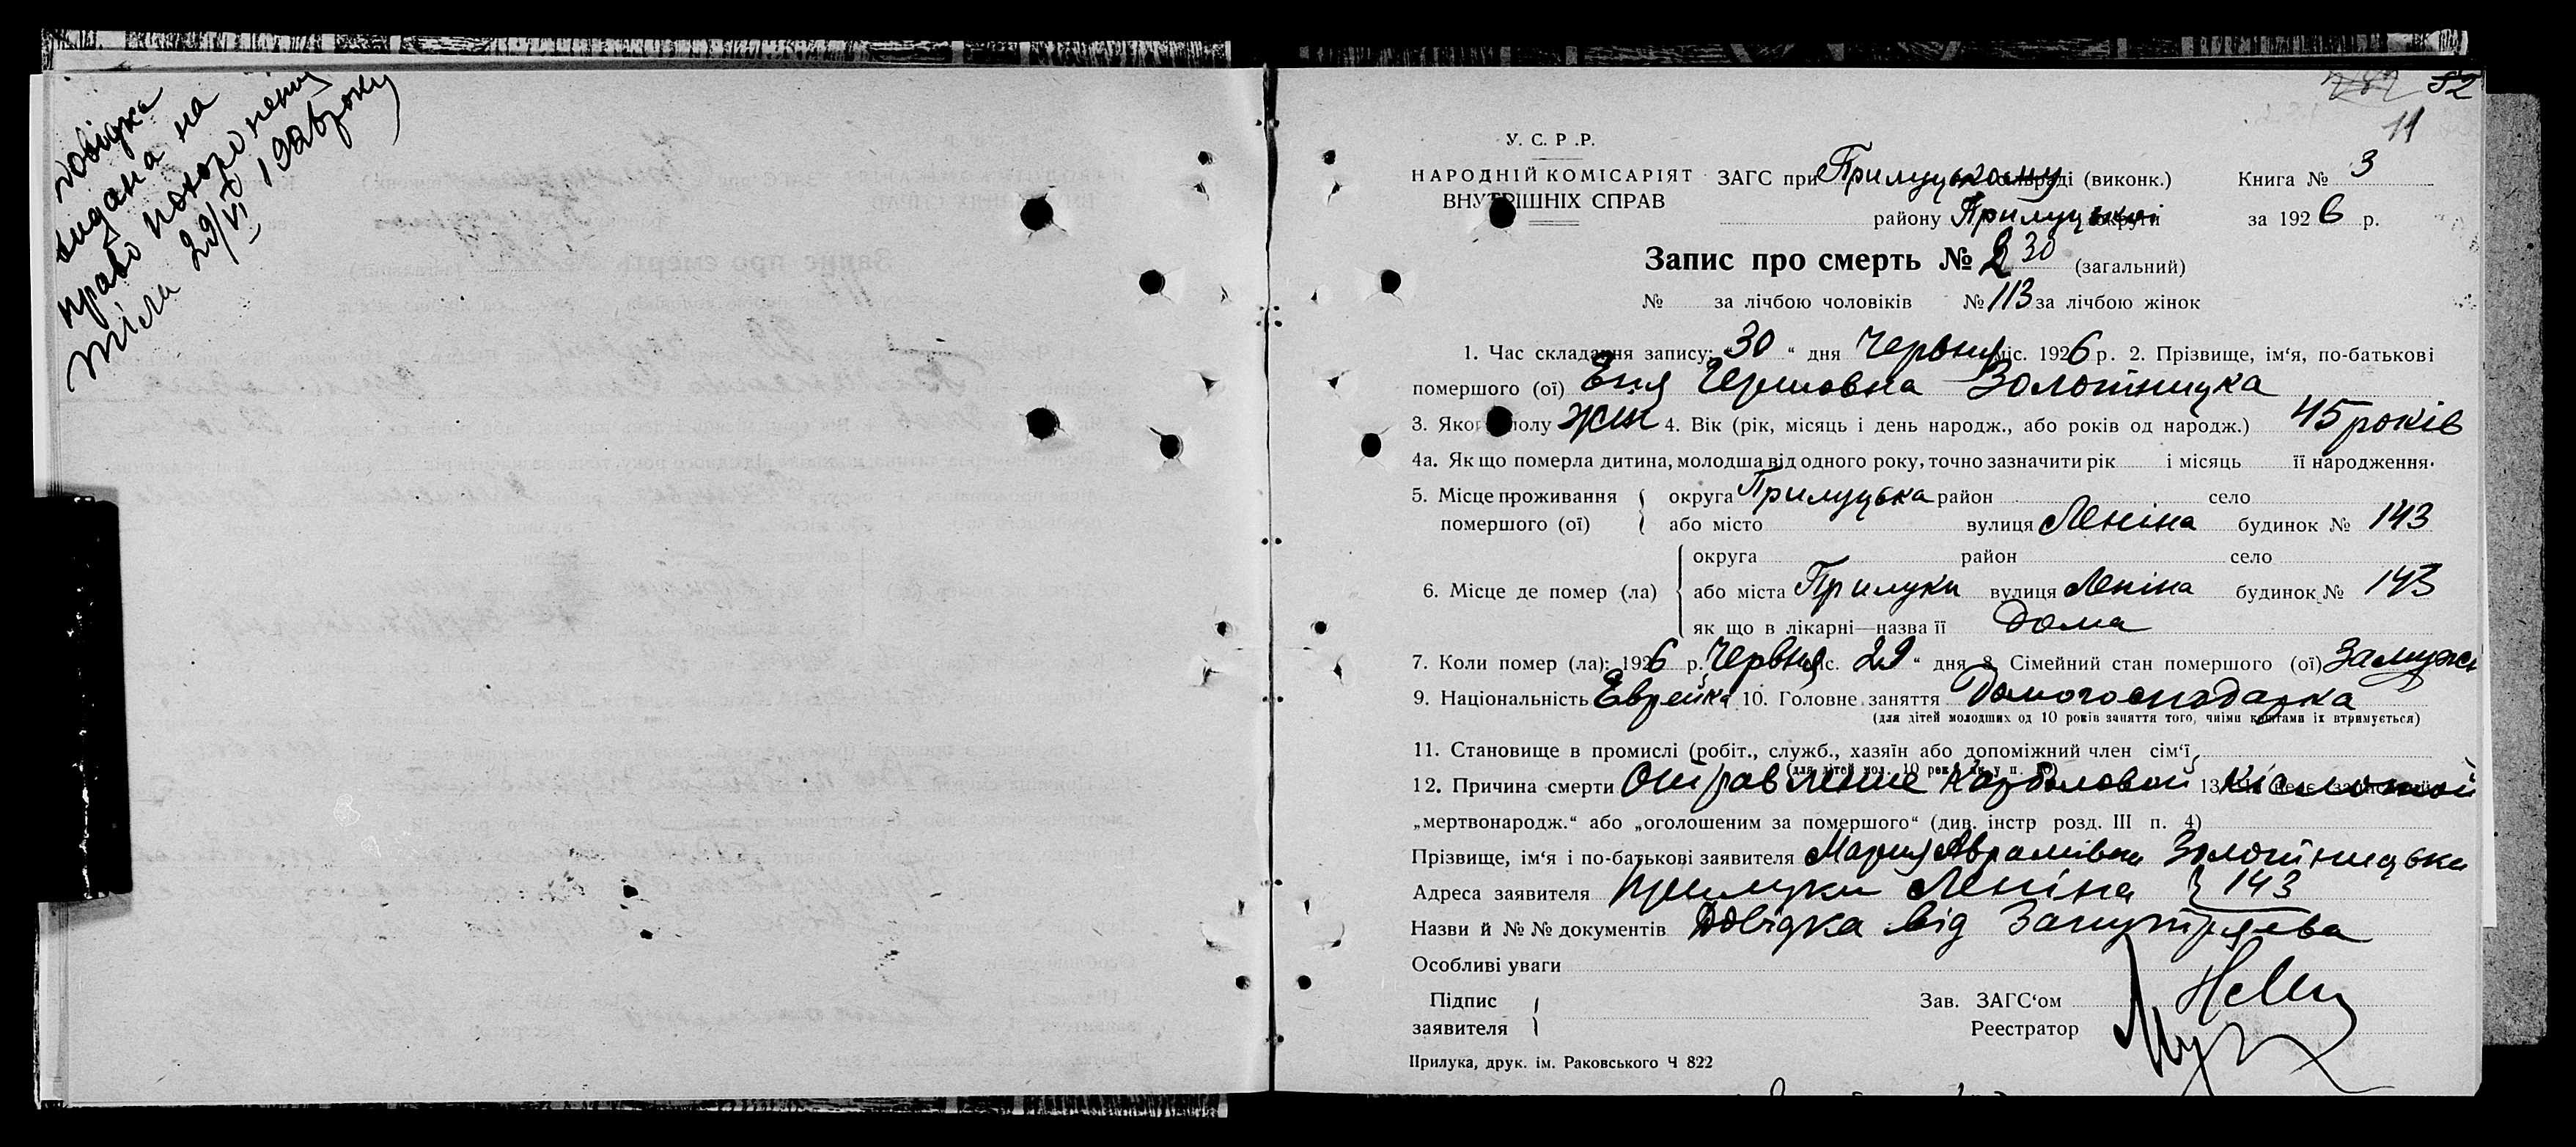 довідка
видана на
право похоронения
тіла 29/VI 1926 року
52
11
У. С. Р .Р.
НАРОДНІЙ КОМІСАРІЯТ ЗАГС при Прилуцькому (виконк.) Книга № 3
ВНУТРІШНІХ СПРАВ району Прилуцької округи за 1926 р.
Запис про смерть № 230 (загальний)
№ за лічбою чоловіків № 113 за лічбою жінок
1. Час складання запису: „30 “ дня Червня міс. 1926 р. 2. Прізвище, ім‘я, по-батькові
помершого (ої) Гершовна Золотницка
3. Якого полу жін 4. Вік (рік, місяць і день народж., або років од народж.) 45 років
4а. Як що померла дитина, молодша від одного року, точно зазначити рік і місяць її народження.
5. Місце проживання округа Прилуцька район село
помершого (ої) або місто вулиця Леніна будинок № 143
округа район село
6. Місце де помер (ла) або міста Прилуки вулиця Леніна будинок № 143
як що в лікарні—назва її Дома
7. Коли помер (ла): 1926 р. Червня міс. 29 “ дня 8. Сімейний стан помершого (ої) Замужн
9. Національність Еврейка 10. Головне заняття Домогосподарка
(для дітей молодших од 10 років заняття того, чиїми коштами їх втримується)
11. Становище в промислі (робіт., служб., хазяїн або допоміжний член сім‘ї,
(для дітей мол. 10 рок. як у п. 10)
12. Причина смерти Отравление Карболовой 13. Кислотой
„мертвонародж.“ або „оголошеним за помершого“ (див. інстр розд. III п. 4)
Прізвище, ім‘я і по-батькові заявителя Мария Абрамівна Золотницька
Адреса заявителя Прилуки Леніна 143
Назви й №№ документів Довідка від
Особливі уваги
Підпис Зав. ЗАГС‘ом
заявителя Реестратор
Прилука, друк. ім. Раковського Ч 822